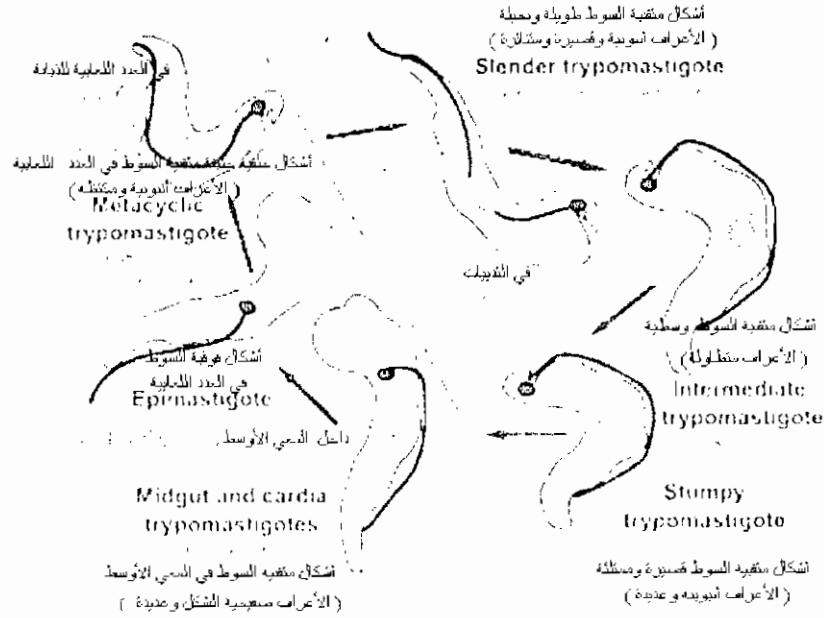 أشكال مثقبية السوط طويلة ونحيلة
( الأعراف أنبوبية وقصيرة ومتناثرة )
Slender trypomastigote
في الغدد اللعابية للذبابة
أشكال حلقية خيفية مثقبية السوط في الغدد اللعابية
( الأعراف أنبوبية ومتنقلة )
Metacyclic
trypomastigote
في الثدييات
أشكال مثقبية السوط وسطية
( الأعراف متطاولة )
Intermediate
trypomastigote
أشكال فوقية السوط
في الغدد اللعابية
Epimastigote
داخل المعي الأوسط
Midgut and cardia
trypomastigotes
أشكال مثقبية السوط في المعي الأوسط
( الأعراف صفيحية الشكل وعديدة )
Stumpy
trypomastigote
أشكال مثقبية السوط قصيرة وممتلئة
( الأعراف أنبوبية وعديدة )